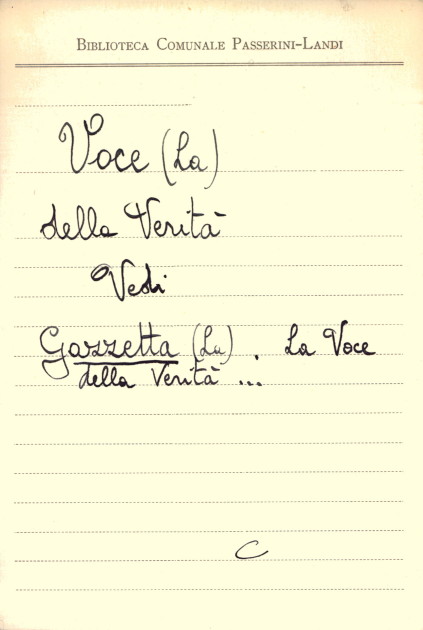 Biblioteca Comunale Passerini-Landi
Voce (La)
della Verità
Vedi
Gazzetta (La). La Voce
della Verità ...
C